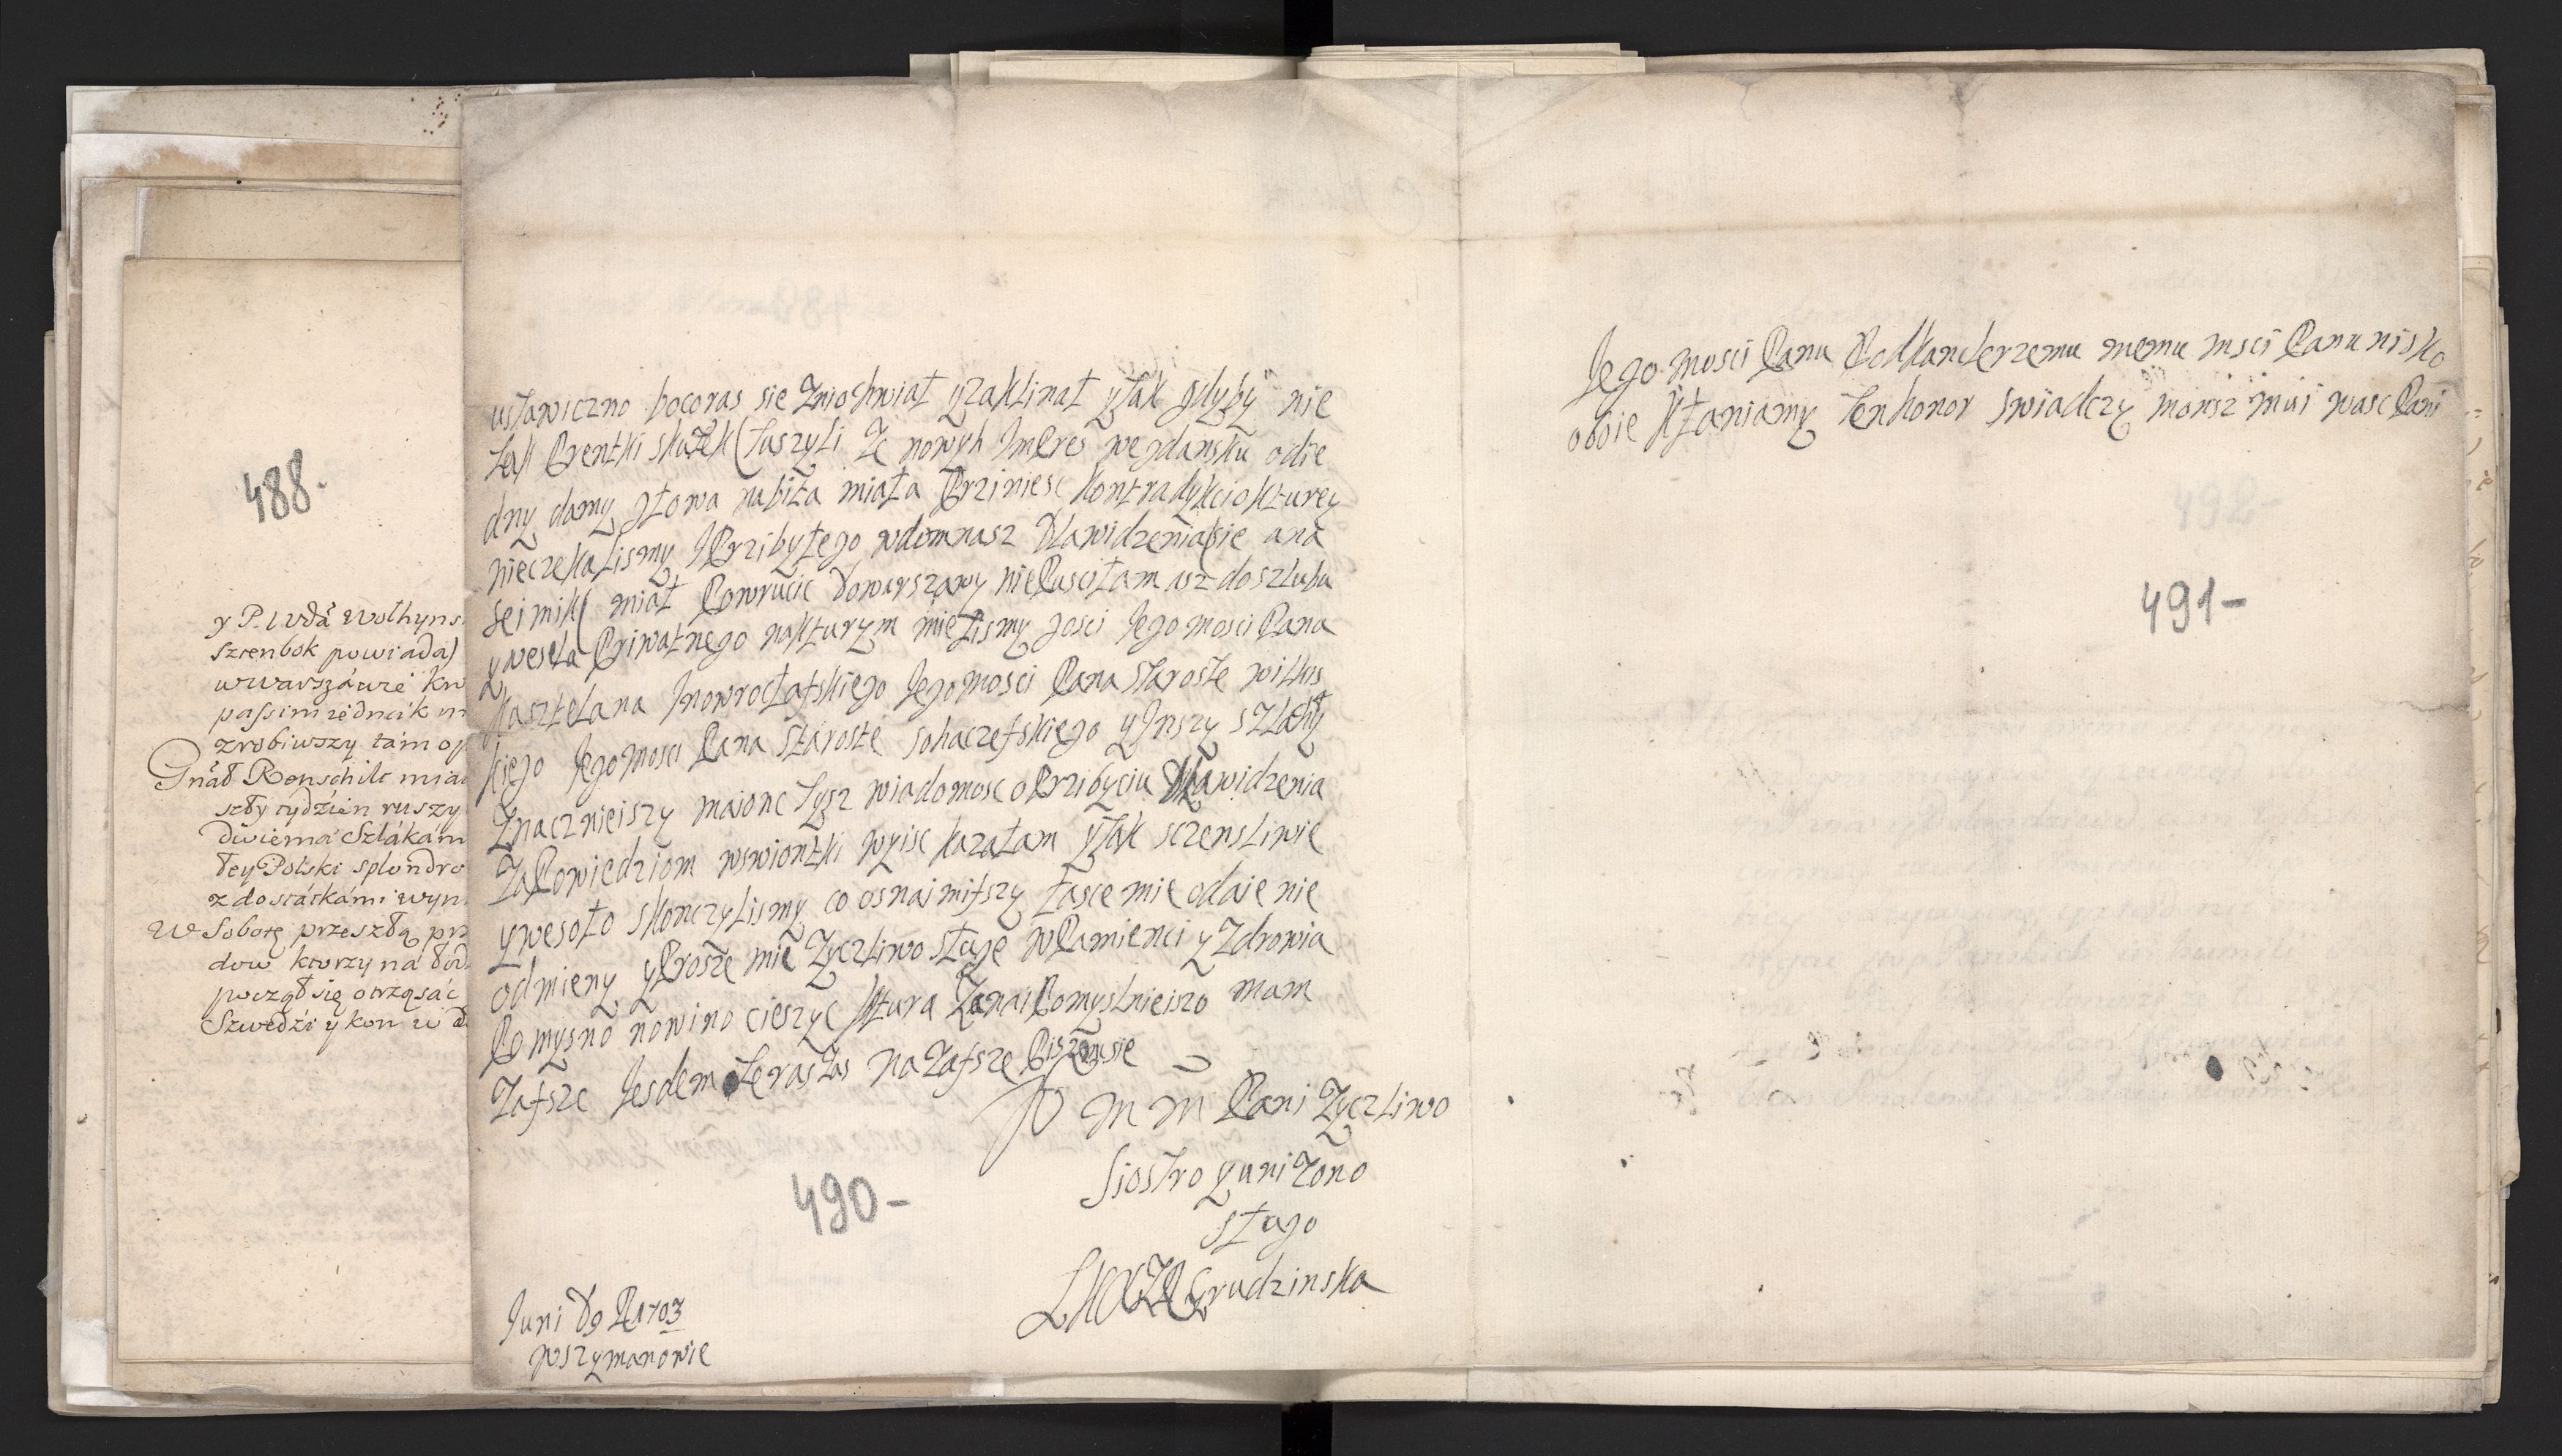 488.
y P. Wdā Wołhyns
szrenbok powiada)
w warszawie kw
passim iednak m
zrobiwszy tam op
Gnał Renschilt miał
szły tydzień ruszy
dwiema Szlakam
łey Polski splondro
z dostatkámi wyn
W Sobotę przeszłą prz
dow ktorzy na
począł się otrząsać
Szwedźi y kon
ustawiczno bocoras sie Zniochwiał yzaklinał ytak gdyby nie
tak Prentki skutek tuszyli Ze nowyh Impres wegdansku odie
dny damy głowa nabiła miała Prziniesc kontradykcio kturey
nieczekalismy IPrzibyłego wdomnasz Dlawidzenia sie ana
seimik miał Powrucic dowarszawy niePusciłam asz doszlubu
ywesela Priwatnego nakturym mielismy gosci Jego mosci Pana
kasztelana Inowrocłafskiego Jegomosci Pana Staroste wilkis
kiego Jegomosci Pana Staroste sohaczefskiego yInszy szlahty
Znacznieiszy maionc tysz wiadomosc oPrzibyciu Dlawidzenia
ZaPowiedziom wswionzki wyisc kazałam ytak sczensliwie
ywesoło skonczylismy co osnaimifszy łasce mie odaie nie
odmieny yProsze mie Zyczliwo sługe wPamienci y Zdrowia
Pomysno nowino cieszyc ktura Zanai Pomyslnieiszo mam
Zafsze Jesdem teraszas na Zafsze Piszonsie
W M M Pani Zyczliwo
Siostro yunizono
sługo
Grudzinska
490-
Juni D9 R1703
wszymanowie
Jego Mosci Panu Podkanclerzemu memu msci Panu nisko
oboie kłaniamy tenhonor swiadczy monsz mui wasc Pani
491-